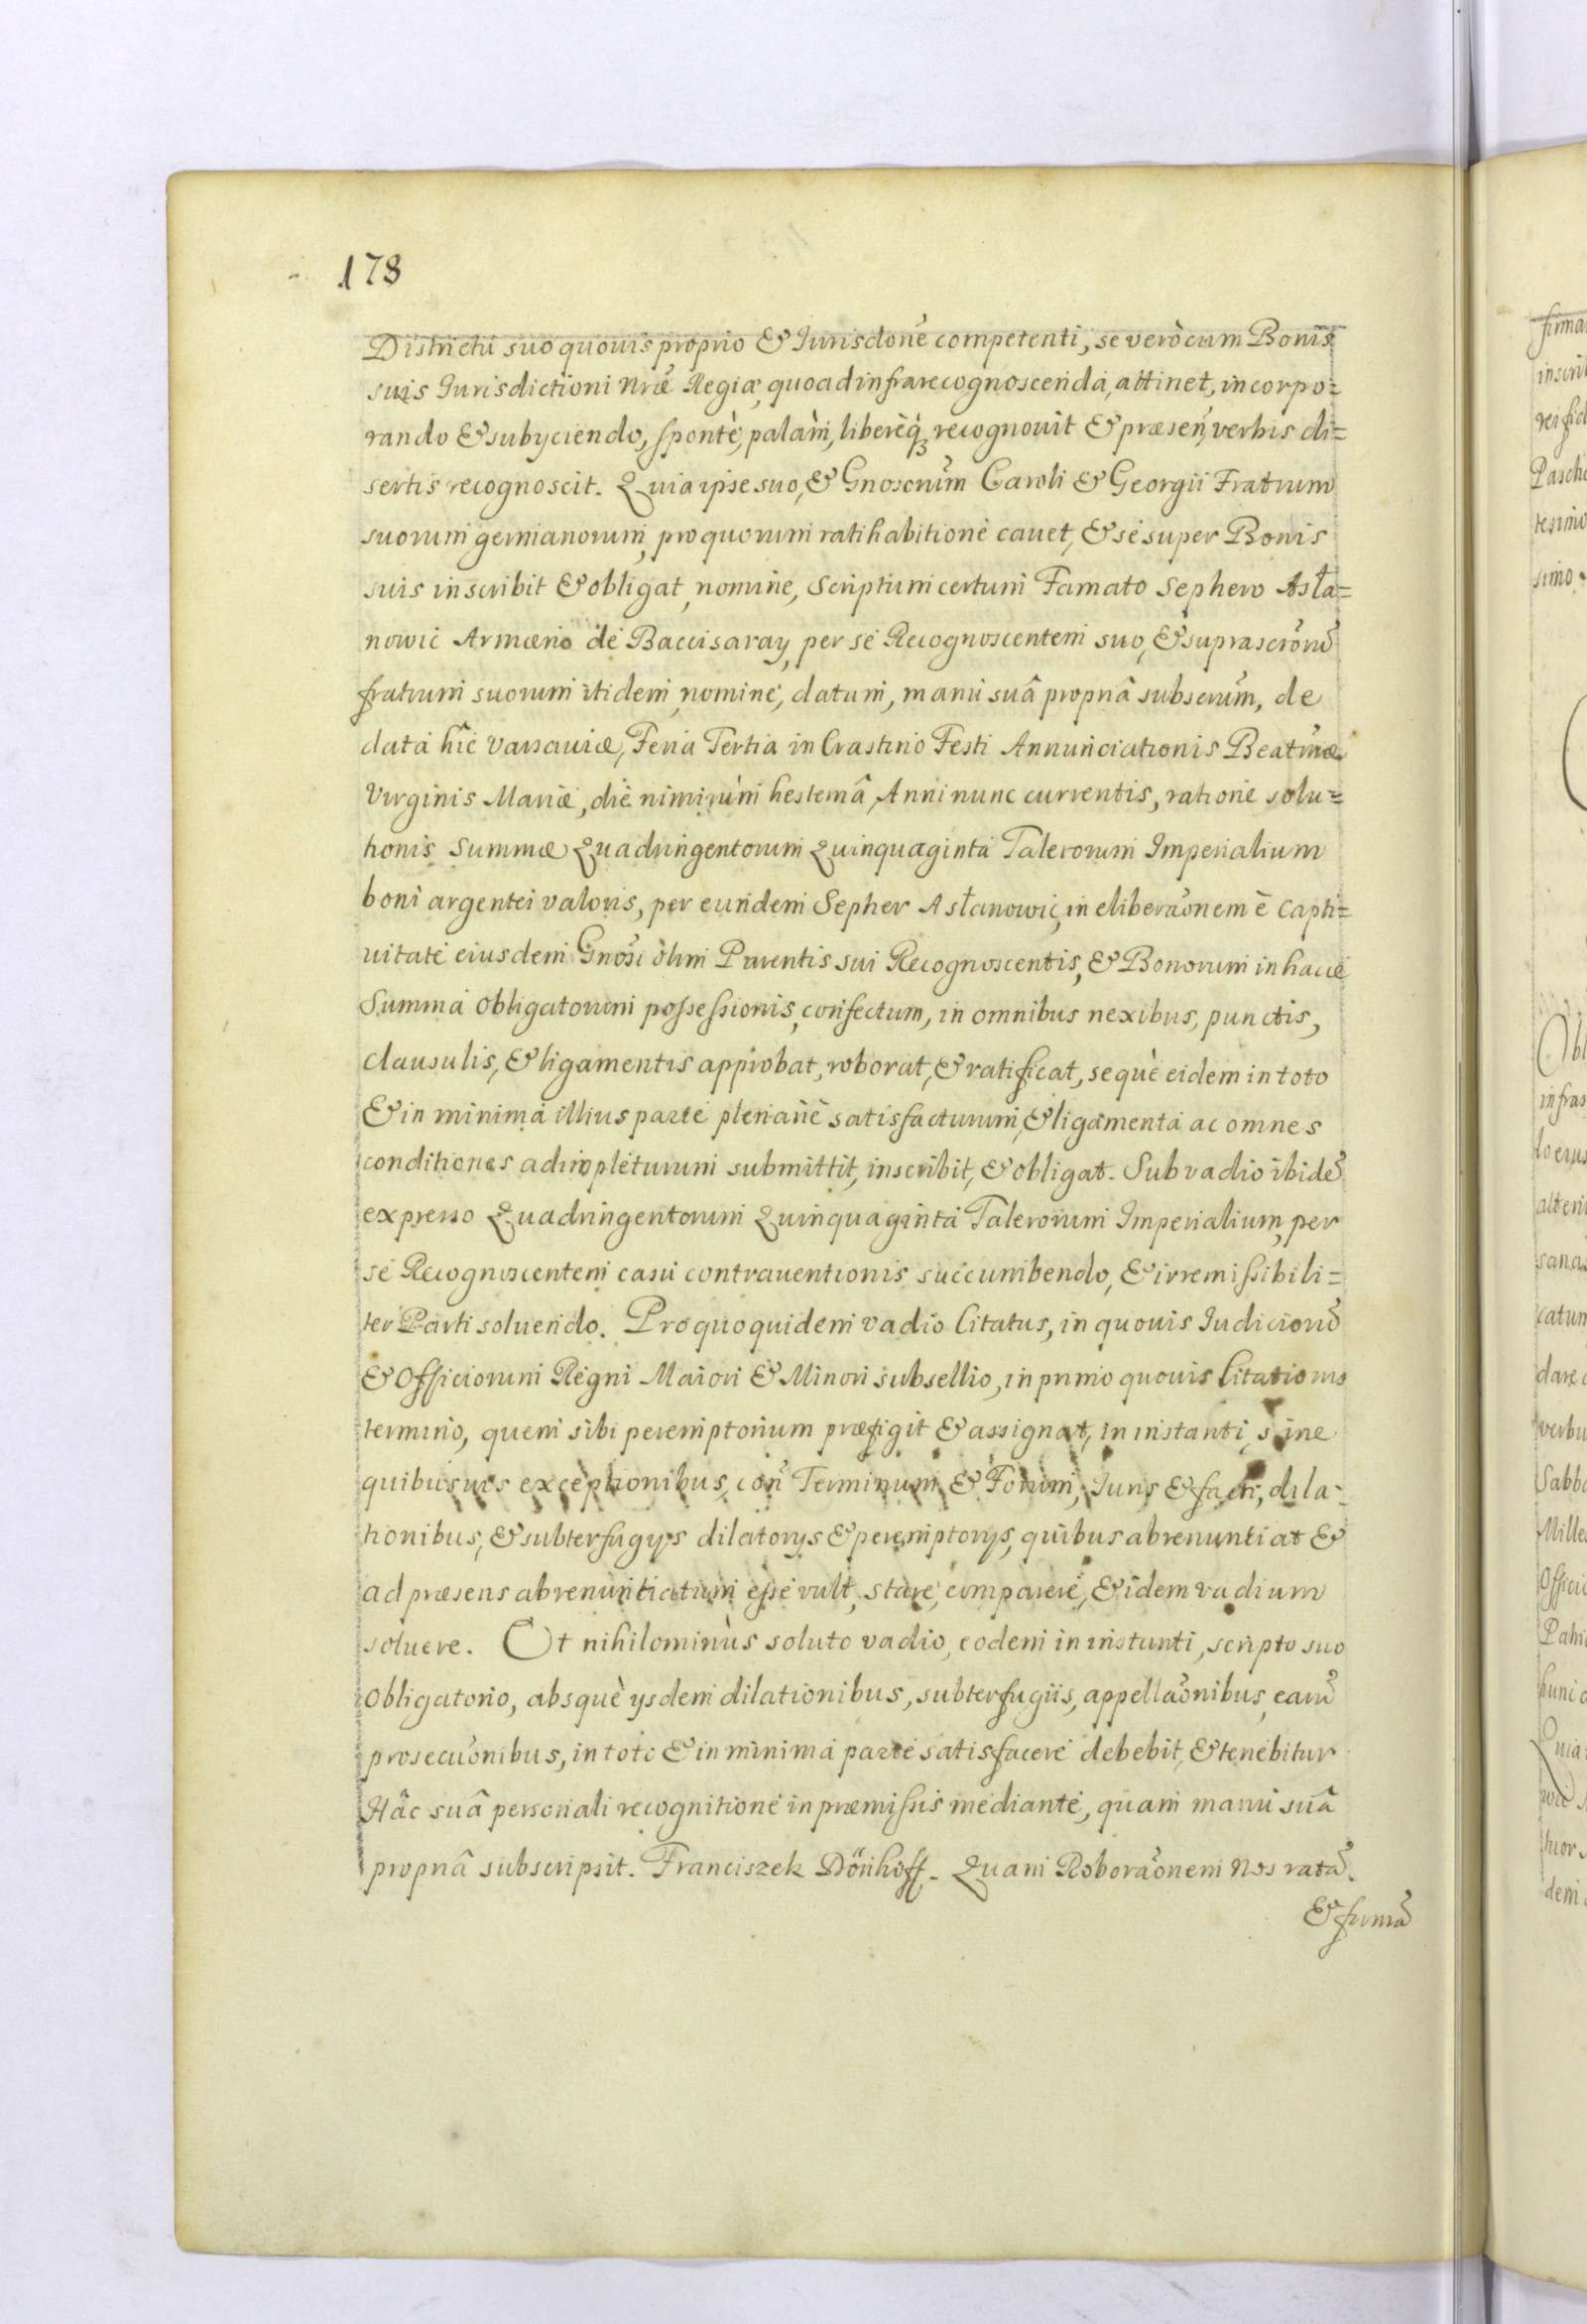 178
Districtu suo quouis proprio & Jurisdone competenti, se verò cum Bonis
suis Jurisdictioni nræ Regiæ, quoad infra recognoscenda, attinet, incorpo=
rando & subyciendo, spontè, palàm, liberèq recognouit & præsen, verbis di=
sertis recognoscit. Quia ipse suo, & Gnosorum Caroli & Georgii Fratrum
suorum germanorum, pro quorum ratihabitione cauet, & se super Bonis
suis inscribit & obligat, nomine, Scriptum certum Famato Sephero Asła=
nowic Armæno de Baccisaray, per se Recognoscentem suo, & suprascrorũ
fratrum suorum itidem nomine, datum, manu suâ propriâ subscrum, de
data hîc Varsauiæ, Feria Tertia in Crastino Festi Annunciationis Beatmæ
Virginis Mariæ, die nimirùm hesternâ Anni nunc currentis, ratione solu=
tionis Summæ Quadringentorum Quinquaginta Talerorum Imperialium
boni argentei valoris, per eundem Sepher Asłanowic, in eliberaonem è capti=
uitate eiusdem Gnosi olim Parentis sui Recognoscentis, & Bonorum in hacce
Summa obligatorum possessionis, confectum, in omnibus nexibus, punctis,
clausulis, & ligamentis approbat, roborat, & ratificat, sequè eidem in toto
& in minima illius parte plenariè satisfacturum, & ligamenta ac omnes
conditiones adimpleturum submittit, inscribit, & obligat. Sub vadio ibidẽ
expresso Quadringentorum Quinquaginta Talerorum Imperialium, per
se Recognoscentem casu contrauentionis succumbendo, & irremissibili=
ter Parti soluendo. Pro quo quidem vadio Citatus, in quouis Iudiciorũ
& Officiorum Regni Maiori & Minori subsellio, in primo quouis Citationis
termino, quem sibi peremptorium præfigit & assignat, in instanti, sine
quibusuis exceptionibus, con Terminum & Forum, Iuris & facti, dila-
tionibus, & subterfugys dilatorys & peremptorys, quibus abrenuntiat &
ad præsens abrenuntiatum esse vult, stare, comparere, & idem vadium
soluere. Et nihilominùs soluto vadio, eodem in instanti, scripto suo
obligatorio, absquè ysdem dilationibus, subterfugiis, appellaonibus, earũ
prosecuonibus, in toto & in minima parte satisfacere debebit, & tenebitur
Hâc suâ personali recognitione in præmissis mediante, quam manu suâ
propriâ subscripsit. Franciszek Dönhoff. Quam Roboraonem Nos ratã
& firmã